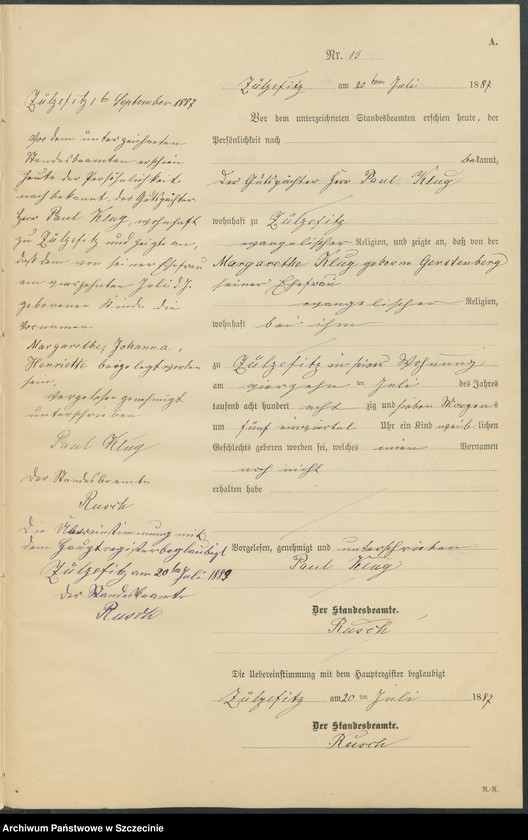 A.
Nr. 13
Zülzefitz am 20ten Juli 1887
Vor dem unterzeichneten Standesbeamten erschien heute, der
Persönlichkeit nach
bekannt,
der Gutspächter Herr Paul Klug
wohnhaft zu Zülzefitz
evangelischer Religion, und zeigte an, daß von der
Margarethe Klug geborene Gerstenberg
seiner Ehefrau
evangelischer Religion,
wohnhaft bei ihm
zu Zülzefitz in seiner Wohnung
am vierzehn ten Juli des Jahres
tausend acht hundert acht zig und sieben Morgens
um fünf einviertel Uhr ein Kind weib lichen
Geschlechts geboren worden sei, welches einen Vornamen
noch nicht
erhalten habe
Vorgelesen, genehmigt und unterschrieben
Paul Klug
Der Standesbeamte.
Rusch
Die Uebereinstimmung mit dem Hauptregister beglaubigt
Zülzefitz am 20 ten Juli 1887
Der Standesbeamte.
Rusch
N.-R.
Zülzefitz 1ten September 1887
Vor dem unterzeichneten
Standesbeamten erschien
heute der Persönlichkeit
nach bekannt, der Gutspächter
Herr Paul Klug, wohnhaft
zu Zülzefitz und zeigte an,
daß dem von seiner Ehefrau
am vierzehnten Juli d. J.
geborenen Kinde die
Vornamen
Margarethe, Johanna,
Henriette beigelegt worden
seien.
Vorgelesen genehmigt
unterschrieben
Paul Klug
Der Standesbeamte
Rusch
Die Übereinstimmung mit
dem Hauptregister beglaubigt
Zülzefitz am 20ten Juli 1889
Der Standesbeamte
Rusch
Archiwum Państwowe w Szczecinie